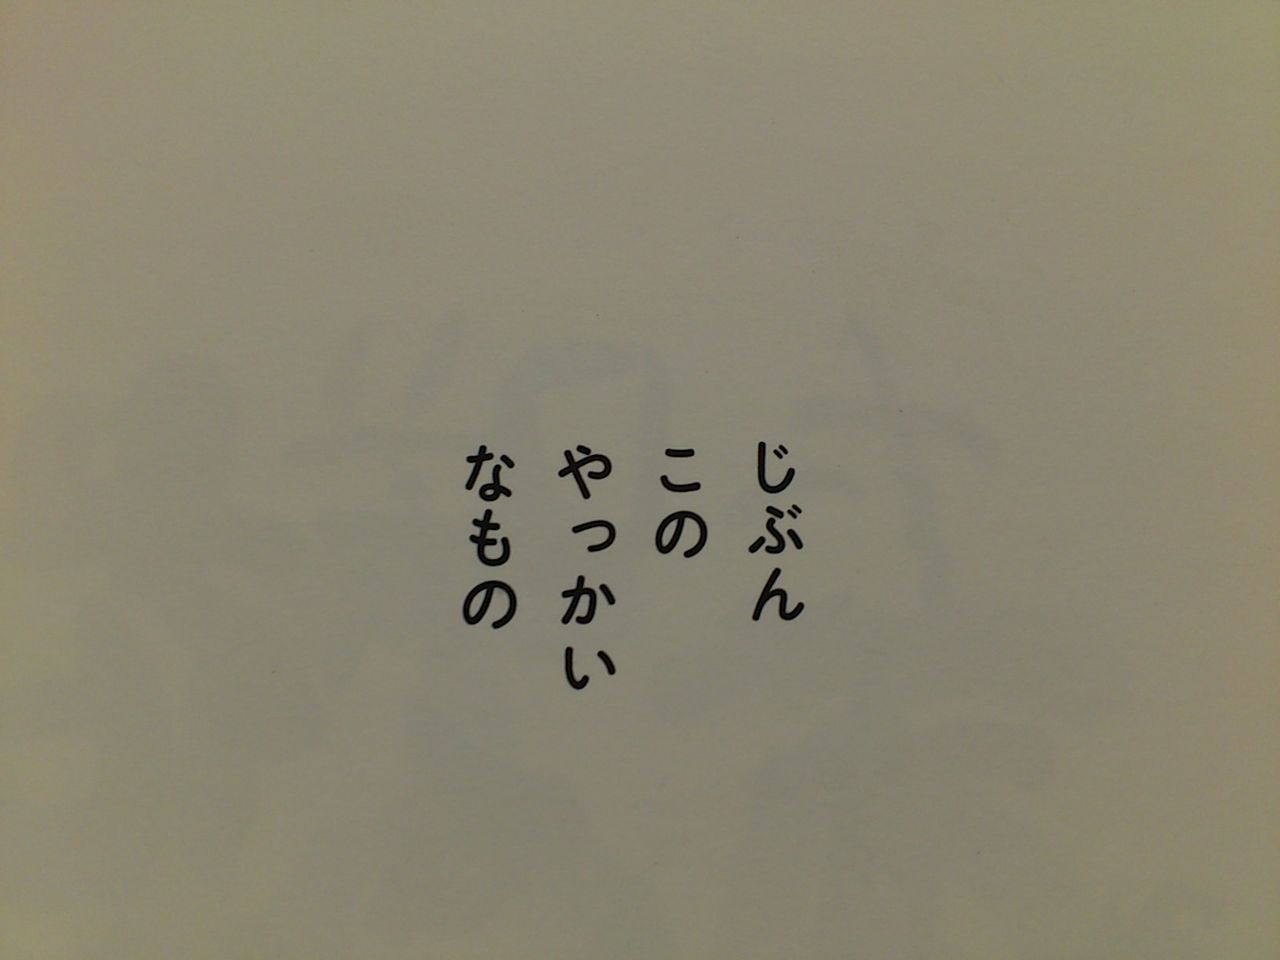 じぶん
この
やっかい
なもの